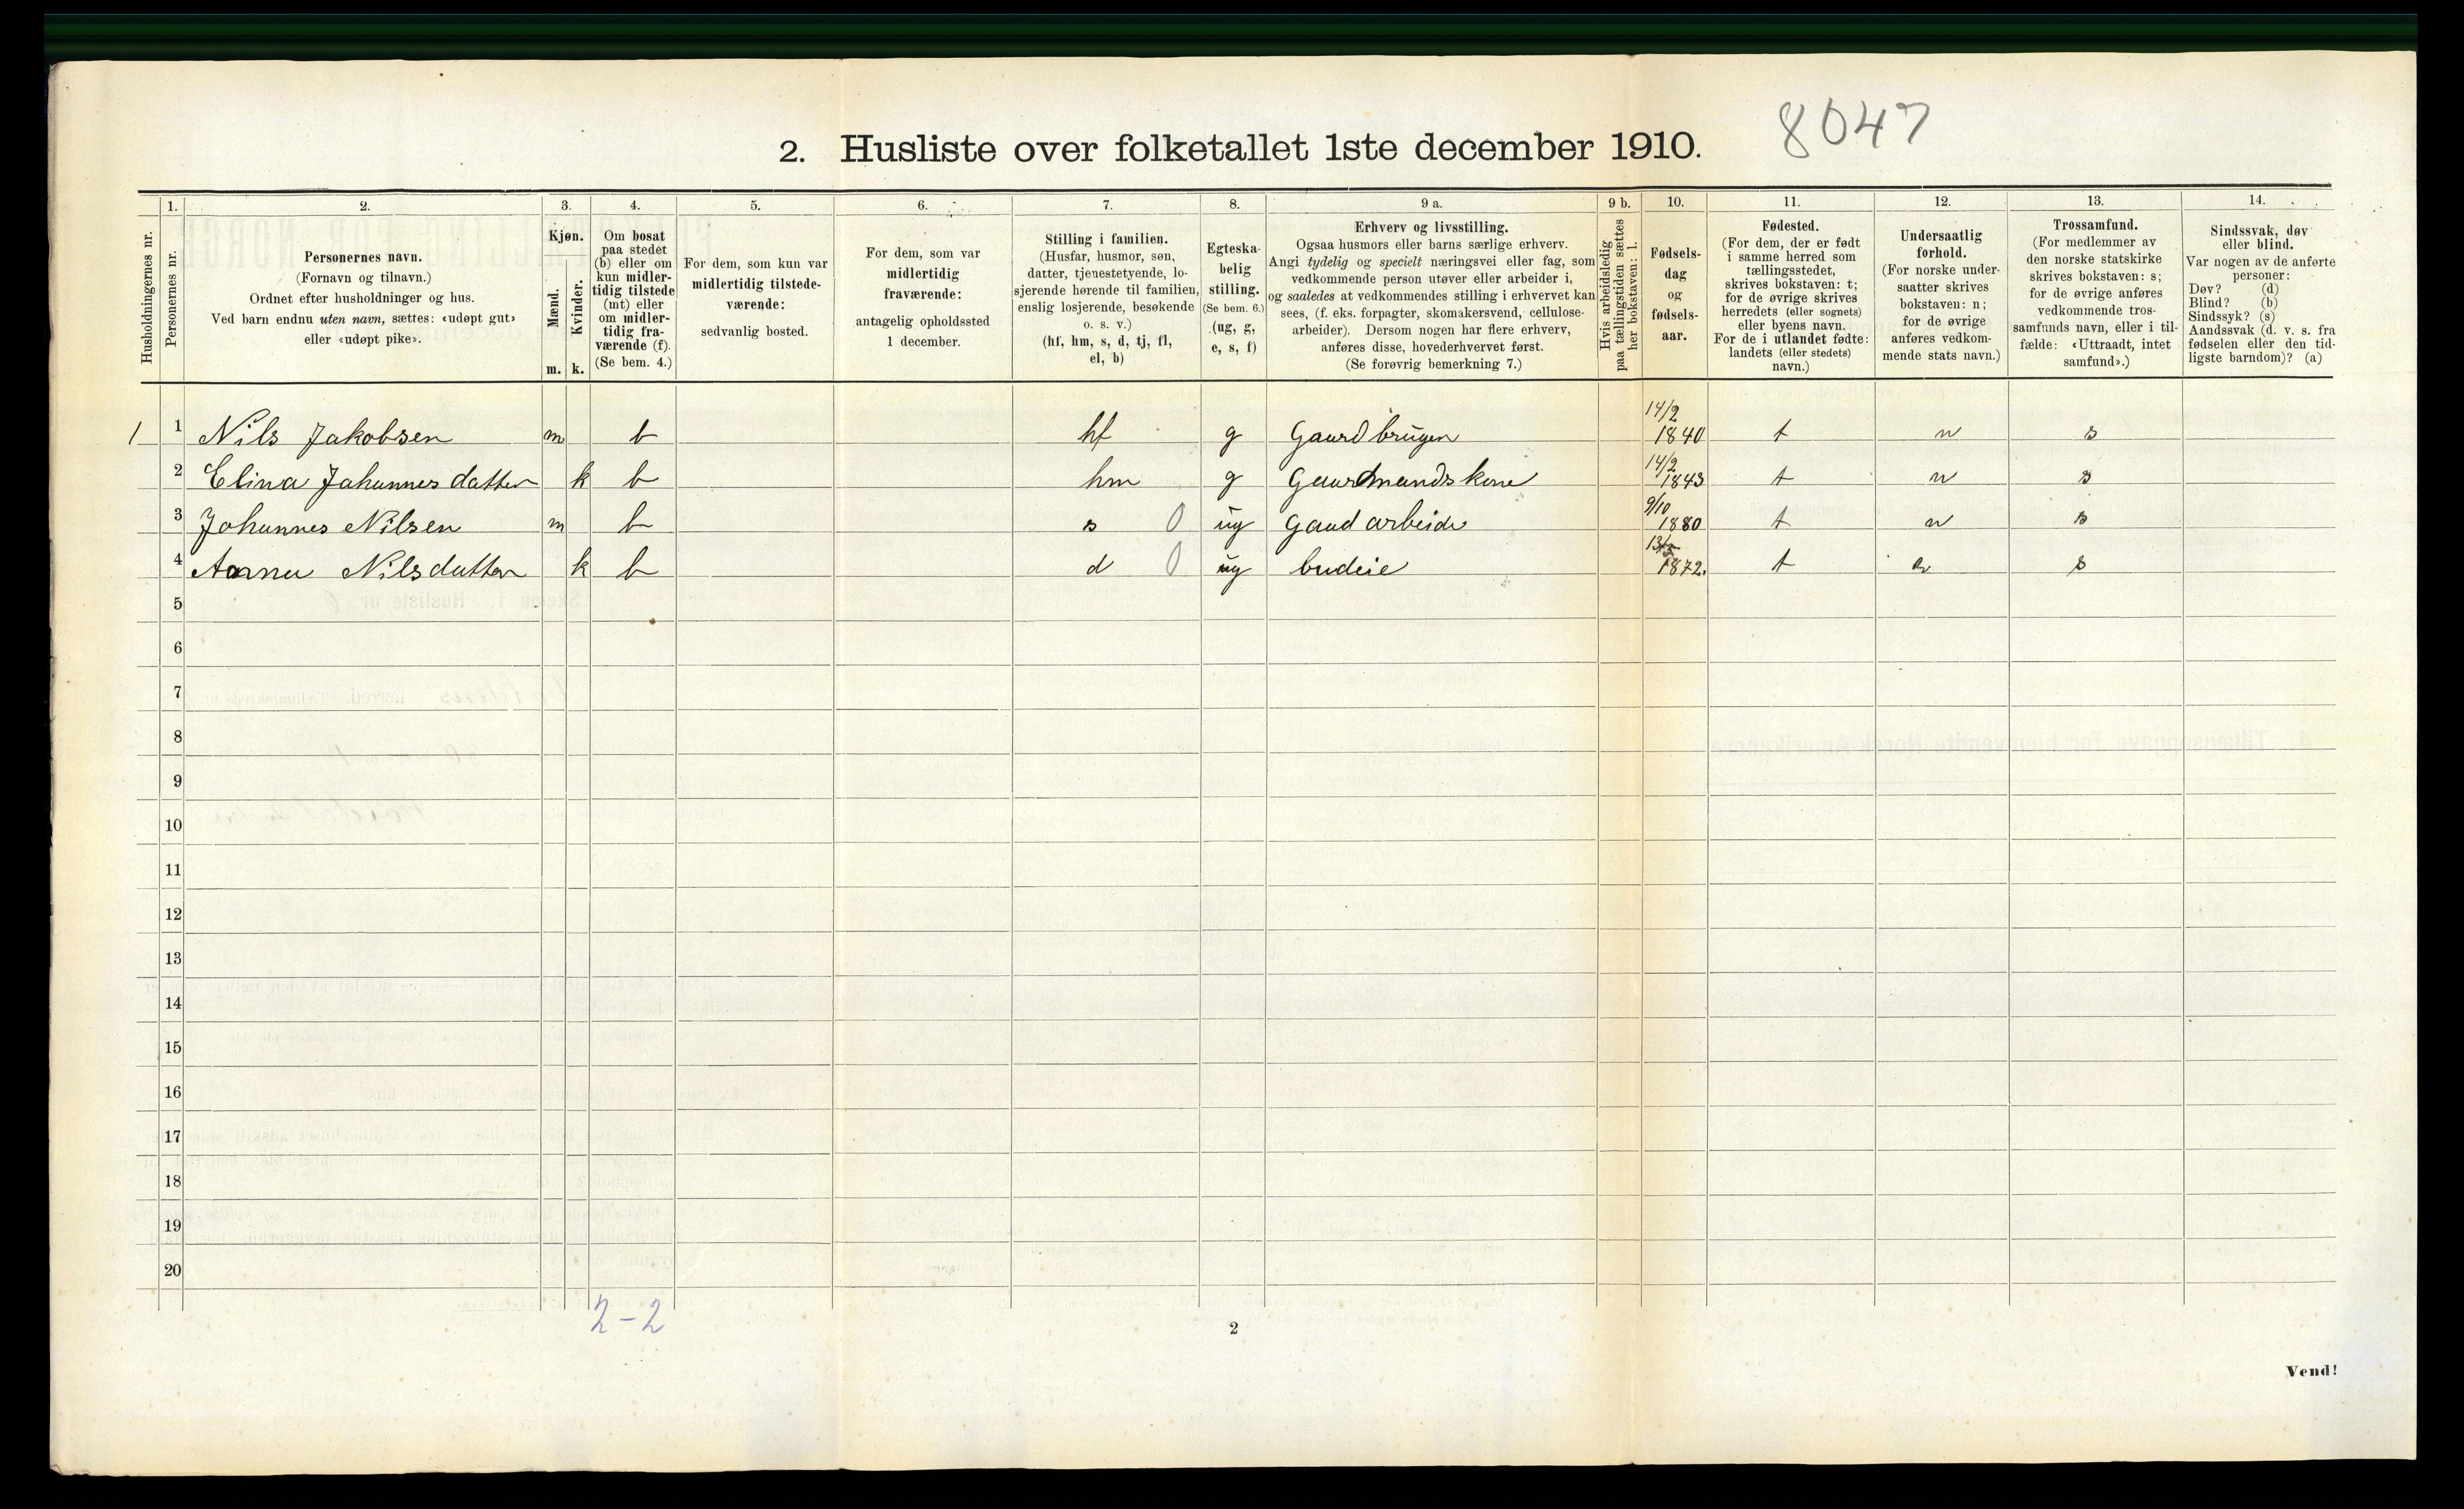 2. Husliste over folketallet 1ste december 1910.
8047
Husholdningernes nr.
1.
Personernes nr.
2.
Personernes navn.
(Fornavn og tilnavn.)
Ordnet efter husholdninger og hus.
Ved barn endnu uten navn, sættes: «udøpt gut»
eller «udøpt pike».
3.
Kjøn.
Mænd.
Kvinder.
m. k.
4.
Om bosat
paa stedet
(b) eller om
kun midler-
tidig tilstede
(mt) eller
om midler-
tidig fra-
værende (f).
(Se bem. 4.)
5.
For dem, som kun var
midlertidig tilstede-
værende:
sedvanlig bosted.
6.
For dem, som var
midlertidig
fraværende:
antagelig opholdssted
1 december.
7.
Stilling i familien.
(Husfar, husmor, søn,
datter, tjenestetyende, lo-
sjerende hørende til familien,
enslig losjerende, besøkende
o. s. v.)
(hf, hm, s, d, tj, fl,
el, b)
8.
Egteska-
belig
stilling.
(Se bem. 6.)
(ug, g,
e, s, f)
9 a.
Erhverv og livsstilling.
Ogsaa husmors eller barns særlige erhverv.
Angi tydelig og specielt næringsvei eller fag, som
vedkommende person utøver eller arbeider i,
og saaledes at vedkommendes stilling i erhvervet kan
sees, (f. eks. forpagter, skomakersvend, cellulose-
arbeider). Dersom nogen har flere erhverv,
anføres disse, hovederhvervet først.
(Se forøvrig bemerkning 7.)
9 b.
Hvis arbeidsledig
paa tællingstiden sættes
her bokstaven: l.
10.
Fødsels-
dag
og
fødsels-
aar.
11.
Fødested.
(For dem, der er født
i samme herred som
tællingsstedet,
skrives bokstaven: t;
for de øvrige skrives
herredets (eller sognets)
eller byens navn.
For de i utlandet fødte:
landets (eller stedets)
navn.)
12.
Undersaatlig
forhold.
(For norske under-
saatter skrives
bokstaven: n;
for de øvrige
anføres vedkom-
mende stats navn.)
13.
Trossamfund.
(For medlemmer av
den norske statskirke
skrives bokstaven: s;
for de øvrige anføres
vedkommende tros-
samfunds navn, eller i til-
fælde: «Uttraadt, intet
samfund».)
14.
Sindssvak, døv
eller blind.
Var nogen av de anførte
personer:
Døv? (d)
Blind? (b)
Sindssyk? (s)
Aandssvak (d. v. s. fra
fødselen eller den tid-
ligste barndom)? (a)
1 1 Nils Jakobsen m b hf g Gaardbruger 14/2 1840 t n s
2 Elina Johannesdatter k b hm g Gaardmandskone 14/2 1843 t n s
3 Johannes Nilsen m b s 0 ug Gaardarbeide 9/10 1880 t n s
4 Anna Nilsdatter k b d 0 ug budeie 1872. t n s
5
6
7
8
9
10
11
12
13
14
15
16
17
18
19
20
2-2
2
Vend!